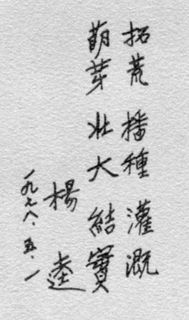 拓荒 播種 灌溉
萌芽 壯大 結實
楊逵
一九七八.五.一